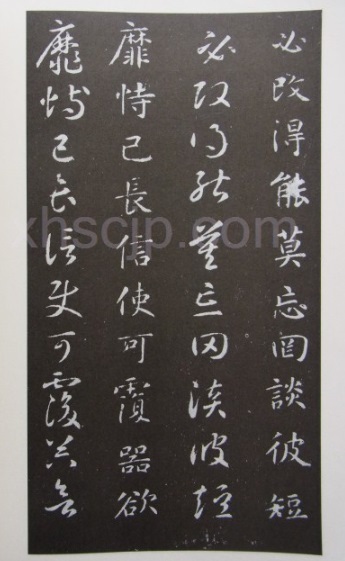 必改得能莫忘罔談彼短
必改得能莫忘罔談彼短
靡恃已長信使可覆器欲
靡恃已長信使可覆器欲
xhscjp.com